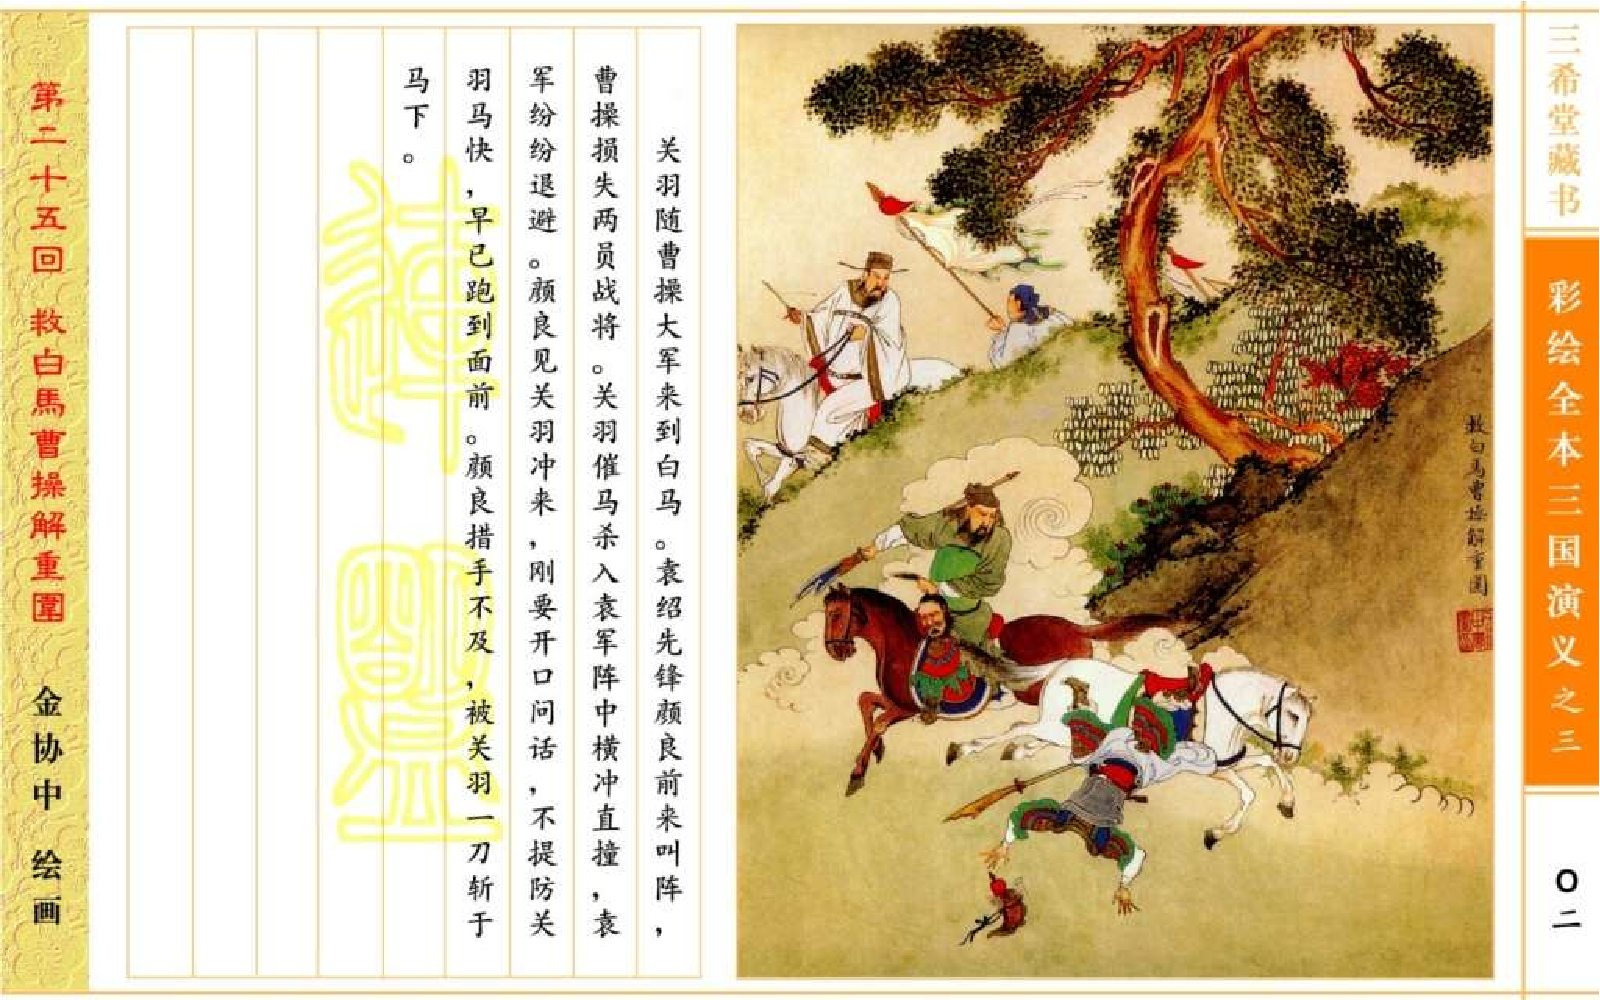 三希堂藏书
彩绘全本三国演义之三
〇二
救白马曹操解重围
关羽随曹操大军来到白马。袁绍先锋颜良前来叫阵，
曹操损失两员战将。关羽催马杀入袁军阵中横冲直撞，袁
军纷纷退避。颜良见关羽冲来，刚要开口问话，不提防关
羽马快，早已跑到面前。颜良措手不及，被关羽一刀斩于
马下。
第二十五回 救白馬曹操解重圍
金协中 绘画